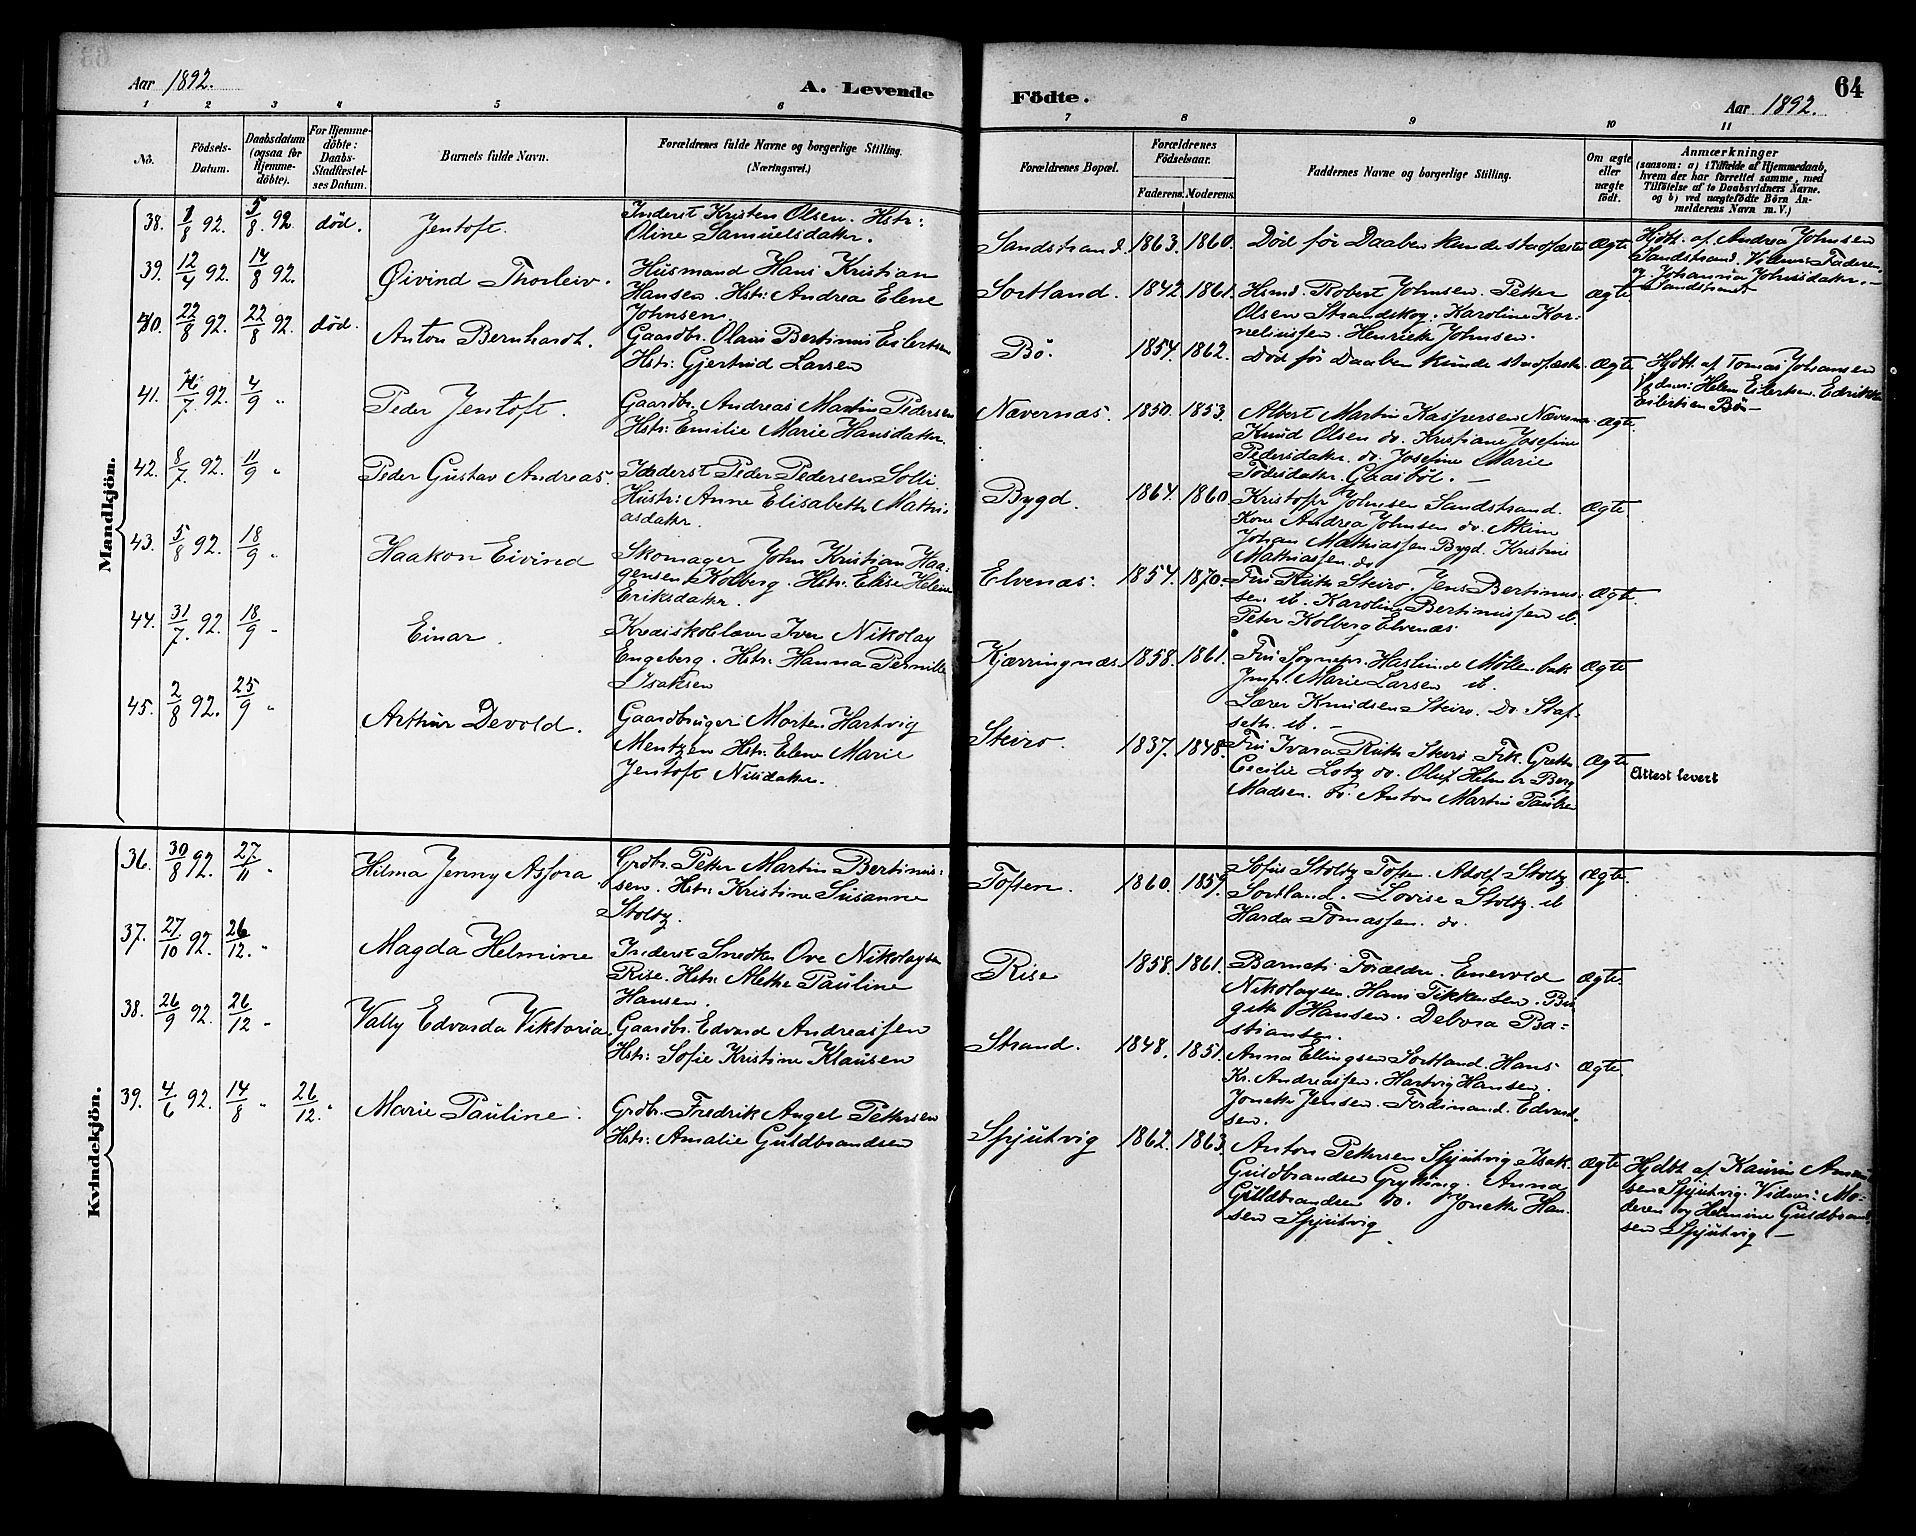 Aar 1892.
A. Levende
Födte.
64
Aar 1892.
1 2 3 4 5 6 7 8 9 10 11
No.
Födsels-
Datum.
Daabsdatum
(ogsaa for
Hjemme-
döbte).
For Hjemme-
döbte:
Daabs-
Stadfæstel-
ses Datum.
Barnets fulde Navn.
Forældrenes fulde Navne og borgerlige Stilling.
(Næringsvei.)
Forældrenes Bopæl.
Forældrenes
Födselsaar.
Faderens. Moderens.
Faddernes Navne og borgerlige Stilling.
Om ægte
eller
uægte
födt.
Anmærkninger
(saasom: a) i Tilfælde af Hjemmedaab,
hvem der har forrettet samme, med
Tilföielse af to Daabsvidners Navne.
og b) ved uægtefödte Börn An-
melderens Navn m. V.)
Mandkjön.
38. 1/8 92. 5/8 92. död. Jentoft.
Inderst Kristen Olsen. Hstr:
Oline Samuelsdatter.
Sandstrand. 1863. 1860.
Död för Daaben kunde stadfæstes
Ægte
Hjdbt. af Andrea Johnsen
Sandstrand. Vidner: Faderen,
og Johanna Johnsdatter,
Sandstrand
39. 12/4 92. 14/8 92. Øivind Thorleiv.
Husmand Hans Kristian
Hansen. Hstr: Andrea Elene
Johnsen.
Sortland. 1842. 1861.
Hsmd. Robert Johnsen. Petter
Olsen Strandskog. Karoline Kor-
neliussen. Henrik Johnsen.
Ægte
40. 22/8 92. 22/8 92. död. Anton Bernhardt.
Gaardbr. Olaus Bertinus Eilertsen
Hstr: Gjertrud Larsen
Bö. 1854. 1862.
Död för Daaben kunde stadfæstes
Ægte
Hjdbt. af Tomas Johansen
Vidner: Helene Eilertsen. Edrikke
Eilertsen Bö
41. 4/9 " Peder Jentoft.
Gaardbr. Andreas Martin Pedersen
Hstr: Emilie Marie Hansdatter.
Nævernæs. 1850. 1853.
Albert Martin Kaspersen Nævernæs
Knud Olsen do. Kristiane Josefine
Pedersdatter. do. Josefine Marie
Gaasböl.
Ægte.
42. 8/7 92. 11/9 " Peder Gustav Andreas.
Inderst Peder Pedersen Solli.
Hustr: Anne Elisabeth Mathi-
asdatter.
Bygd. 1864. 1860
Kristofer Johnsen Sandstrand.
Kone Andrea Johnsen do.
Johan Mathiassen Bygd. Kristine
Mathiassen. do
Ægte.
43. 5/8 92. 18/9 " Haakon Eivind
Skomager John Kristian Haa-
gensen Kolberg. Hstr: Elise Helene
Eriksdatter.
Elvenæs. 1854. 1870.
Fru Ruth Steiro. Jens Bertinus-
sen. ib. Karoline Bertinussen ib.
Peter Kolberg Elvenæs
Ægte.
44. 31/7 92. 18/9 " Einar.
Iver Nikolay
Engeberg. Hstr: Hanna Pernille
Isaksen
Kjærringnæs 1858. 1861.
Jmf. Marie Larsen ib.
Lærer Knudsen Steiro. Do
ib.
Ægte
45. 2/8 92. 25/9 " Arthur Devold.
Gaardbruger Morten Hartvig
Mentzen Hstr: Elene Marie
Jentoft Nilsdatter.
Steiro. 1837. 1848.
Fru Ruth Steiro Frk. Grethe
Cecilie Lotz do. Oluf Helmer Berg
Madsen. do. Anton Martin Paulsen
Ægte
Attest levert
Kvindekjön.
36. 30/8 92. 27/11 " Hilma Jenny Asfora.
Grdbr. Petter Martin Bertinus-
sen. Hstr: Kristine Susanne
Stoltz.
Toften. 1860. 1859.
Sofus Stoltz Toften. Adolf Stoltz
Sortland. Lovise Stoltz. ib
Harda Tomassen. do.
Ægte.
37. 27/10 92. 26/12. " Magda Helmine
Inderst Snedker Ove Nikolaysen
Rise. Hstr: Alethe Pauline
Hansen.
Rise 1858. 1861.
Barnets Forældre. Enevold
Nikolaysen. Hans Tikkensen. Bir-
gitte Hansen. Debora Ba-
stiansen.
Ægte
38. 26/9 92. 26/12 " Vally Edvarda Viktoria.
Gaardbr. Edvard Andreassen
Hstr: Sofie Kristine Klausen
Strand. 1848. 1851.
Anna Ellingsen Sortland. Hans
Kr. Andreassen. Hartvig Hansen.
Jonette Jensen. Ferdinand. Edvard-
sen.
Ægte.
39. 4/6 92. 14/8 " 26/12. " Marie Pauline.
Grdbr. Fredrik Angel Pettersen
Hstr: Amalie Guldbrandsen
Spjutvig 1862. 1863.
Anton Pettersen Spjutvig Isak
Guldbrandsen Grytting. Anna
Guldbrandsen do. Jonette Han-
sen Spjutvig
Ægte
Hjdbt. af Kaurin
sen Spjutvig. Vidner: Mo-
deren og Helmine Guldbrand-
sen Spjutvig